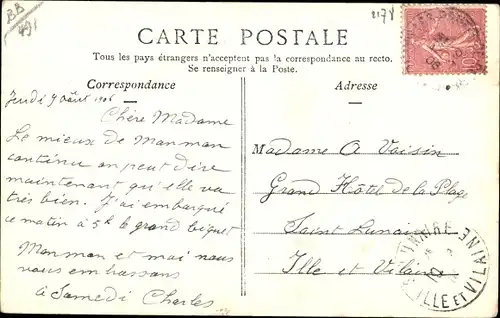 BB
491
2178
CARTE POSTALE
Tous les pays étrangers n'acceptent pas la correspondance au recto.
Se renseigner à la Poste.
Correspondance
Adresse
Jeudi 9 Août 1906
Chère Madame
Le mieux de Manman
continu on peut dire
maintenant qu'elle va
très bien. J'ai embarqué
ce matin à 5h le grand biquet
Manman et moi nous
nous embrassons
à Samedi Charles
Madame A Voisin
Grand Hôtel de la Plage
Saint Lunaire
Ille et Vilaine
LUNAIRE
ILLE ET VILAINE
10